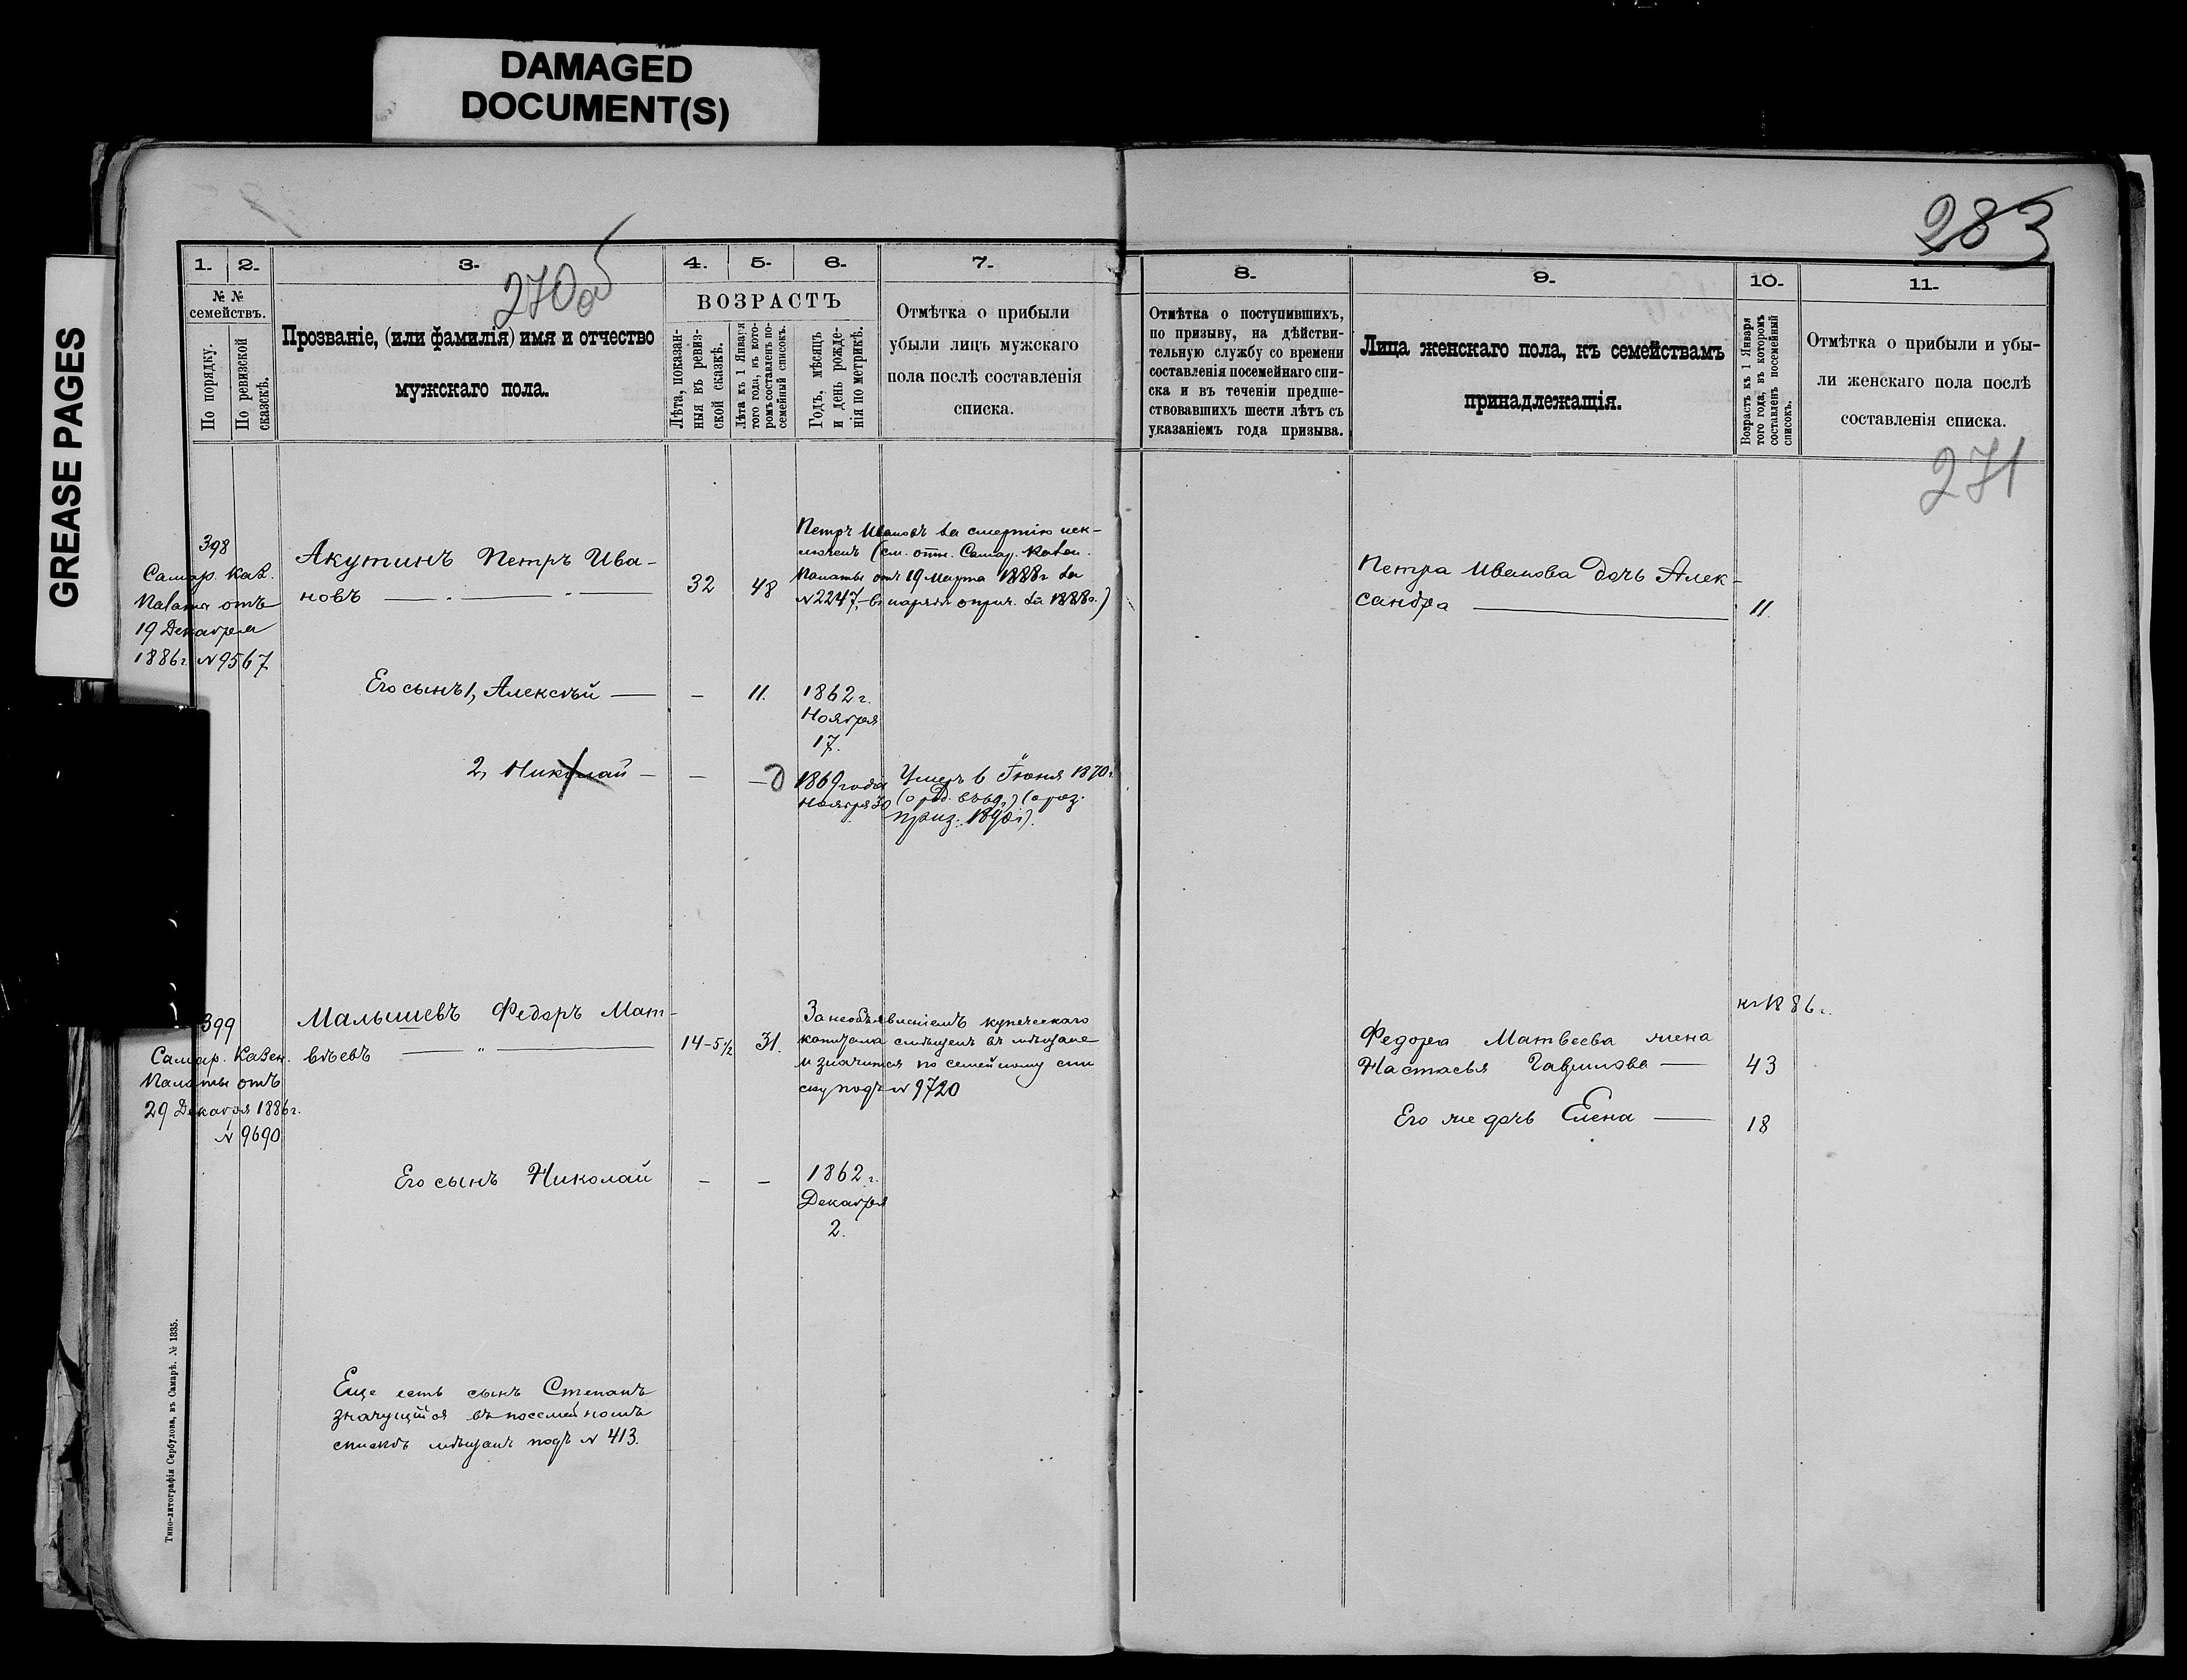 DAMAGED
DOCUMENT(S)
GREASE PAGES
283
270 об
1. 2. 3. 4. 5. 6. 7.
№ №
семействъ.
По порядку.
По ревизской
сказкѣ.
Прозваніе, (или фамилія) имя и отчество
мужскаго пола.
ВОЗРАСТЪ
Лѣта, показан-
ныя въ ревиз-
ской сказкѣ.
Лѣта къ 1 Января
того года, въ кото-
ромъ составленъ по-
семейный списокъ.
Годъ, мѣсяцъ
и день рожде-
нія по метрикѣ.
Отмѣтка о прибыли
убыли лицъ мужскаго
пола послѣ составленія
списка.
398
Самар. Каз.
Палата отъ
19 Декабря
1886г. № 9567
Акутинъ Петръ Ива-
новъ
32
48
Петръ Ивановъ за смертію иск-
люченъ (см. отн. Самар. Казен.
Палаты отъ 19 Марта 1888г за
№ 2247,
за 1888г.)
Его сынъ 1, Алексѣй — — 11.
1862 г.
Ноября
17.
2, Николай — — —
1869 года
Ноября 30
Умеръ 6 Іюня 1870г.
399
Самар. Казен.
Палаты отъ
29 Декабря 1886г.
№ 9690
Малышевъ Федоръ Мат-
вѣевъ
14-5½
31.
За необъявленіемъ купеческаго
капитала смѣщенъ въ мѣщане
и значится по семейному спи
ску подъ № 9720
Его сынъ Николай — —
1862 г.
Декабря
2.
Еще есть сынъ Степанъ
значущійся въ посемейномъ
спискѣ мѣщанъ подъ № 413.
Типо-литографія Сербулова, въ Самарѣ. № 1335.
8. 9. 10. 11.
Отмѣтка о поступившихъ,
по призыву, на дѣйстви-
тельную службу со времени
составленія посемейнаго спи-
ска и въ теченіи предше-
ствовавшихъ шести лѣтъ съ
указаніемъ года призыва.
Лица женскаго пола, къ семействамъ
принадлежащія.
Возрастъ къ 1 Января
того года, въ которомъ
составленъ посемейный
списокъ.
Отмѣтка о прибыли и убы-
ли женскаго пола послѣ
составленія списка.
271
Петра Иванова дочь Алек-
сандра
11.
1886г.
Федора Матвеева жена
Настасья Гаврилова — 43
Его же дочь Елена — 18